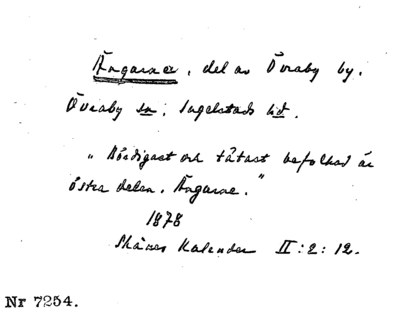 Ängarne, del av Övraby by.
Övraby sn, Ingelstads hd.
"Bördigast och tätast befolkad är
östra delen, Ängarne."
1878
Skånes Kalender II:2:12.
Nr 7254.